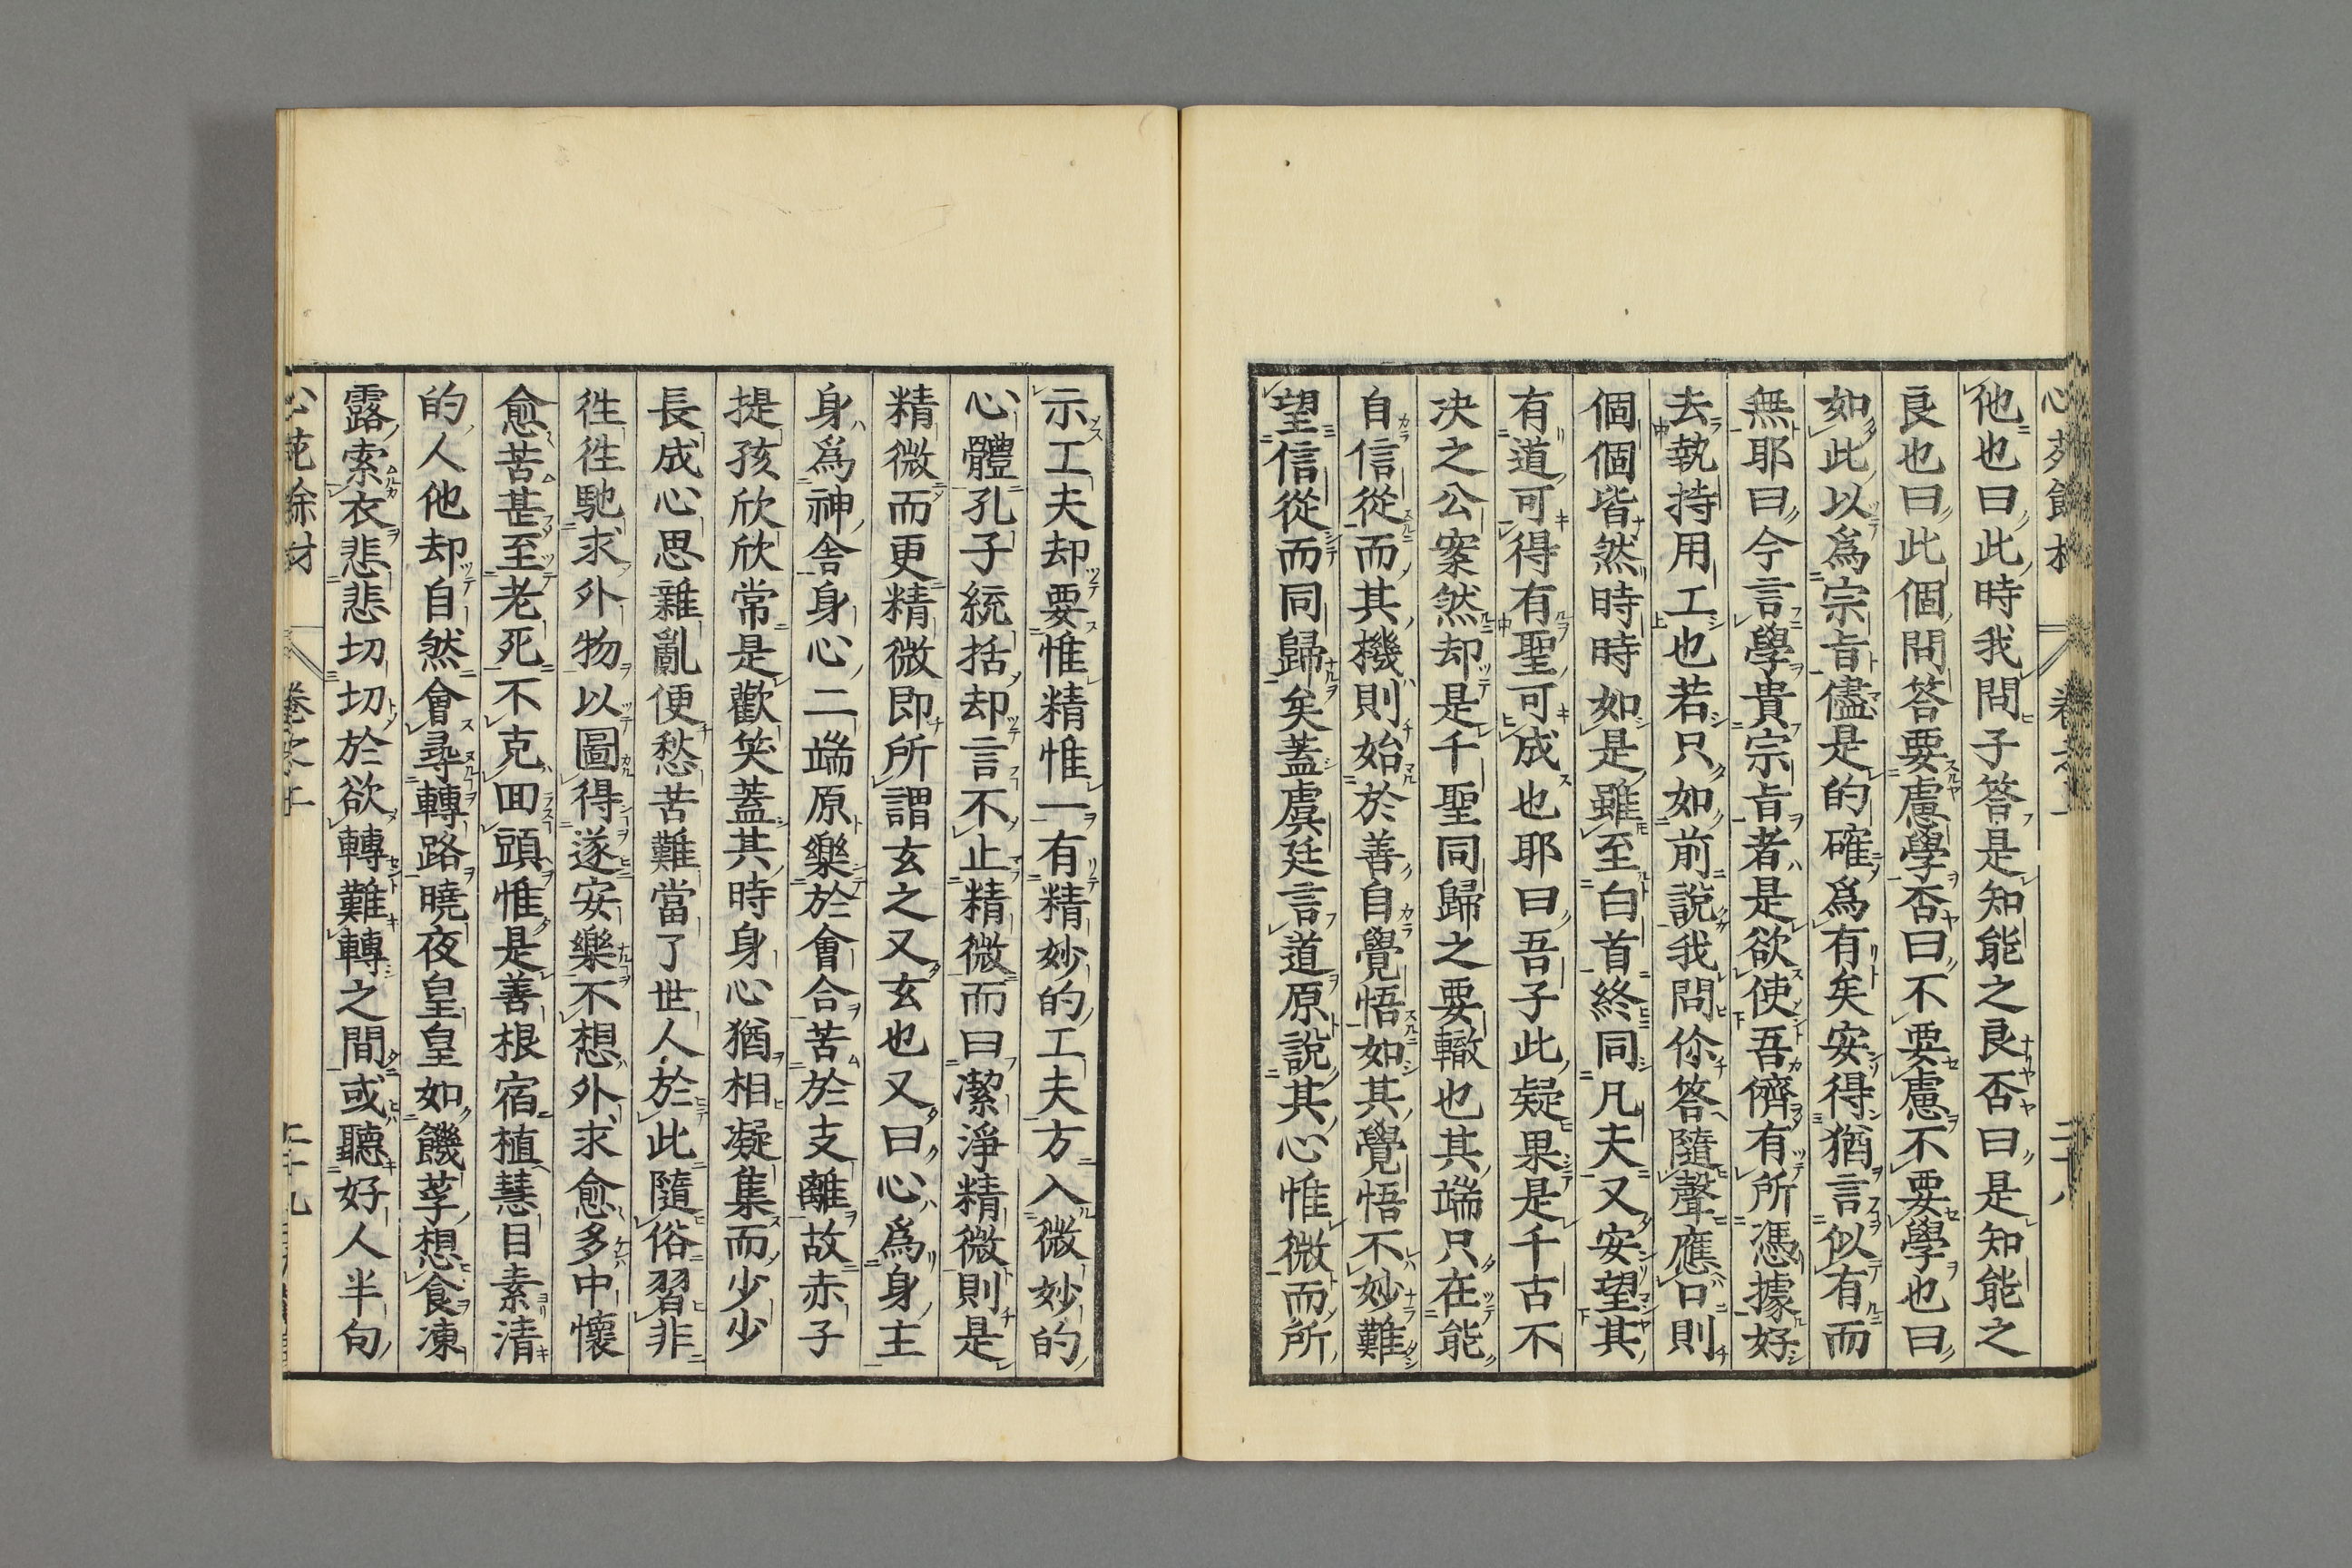 他也曰此時我問子答是知能之良否曰是知能之
良也曰此個問答要慮學否曰不要慮不要學也曰
如此以爲宗旨儘是的確爲有矣安得猶言似有而
無耶曰今言學貴宗旨者是欲使吾儕有所憑據好
去執持用工也若只如前說我問你答隨聲應口則
個個皆然時時如是雖至白首終同凡夫又安望其
有道可得有聖可成也耶曰吾子此疑果是千古不
决之公案然却是千聖同歸之要轍也其端只在能
自信從而其機則始於善自覺悟如其覺悟不妙難
望信從而同歸矣蓋虞廷言道原說其心惟微而所
示工夫却要惟精惟一有精妙的工夫方入微妙的
心體孔子統括却言不止精微而曰潔淨精微則是
精微而更精微即所謂玄之又玄也又曰心爲身主
身爲神舍身心二端原樂於會合苦於支離故赤子
提孩欣欣常是歡笑蓋其時身心猶相凝集而少少
長成心思雜亂便愁苦難當了世人於此隨俗習非
徃徃馳求外物以圖得遂安樂不想外求愈多中懷
愈苦甚至老死不克回頭惟是善根宿植慧目素清
的人他却自然會尋轉路曉夜皇皇如饑莩想食凍
露索衣悲悲切切於欲轉難轉之間或聽好人半句